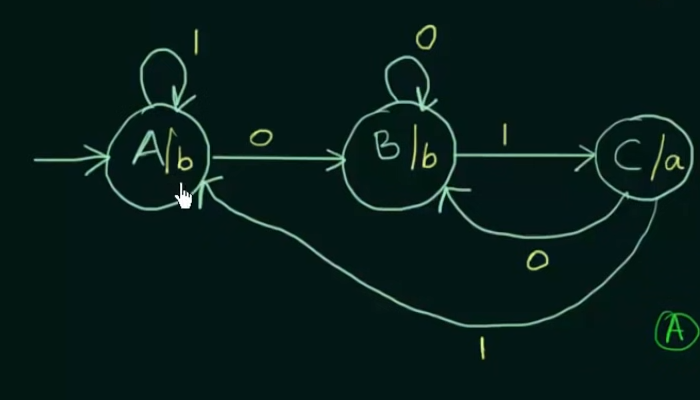 1 0
A/b 0 B/b 1 C/a
0
A
1